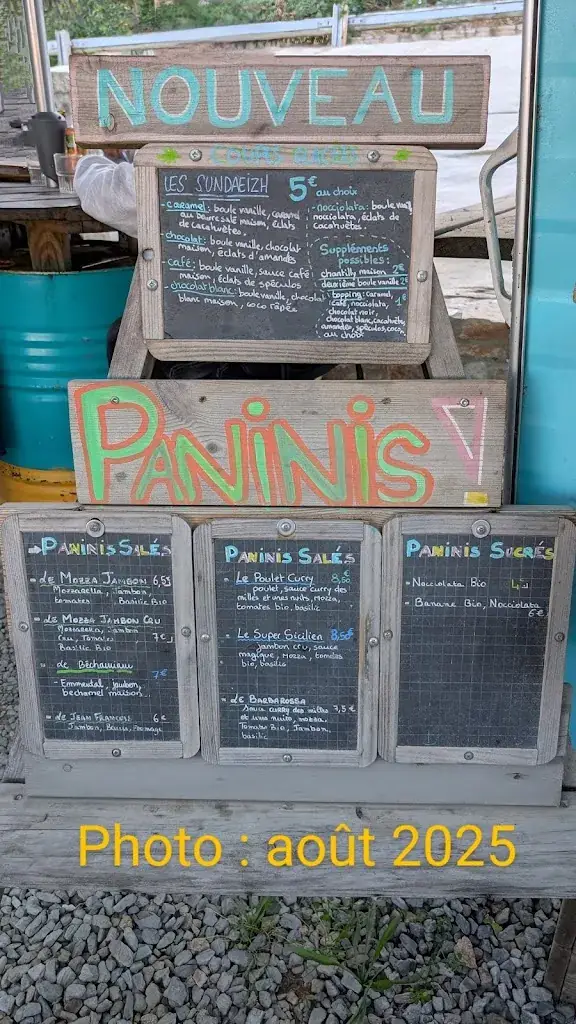 NOUVEAU
LES SUNDAEIZH 5€ au choix
- caramel : boule vanille, caramel
au beurre salé maison, éclats
de cacahuètes
- chocolat : boule vanille, chocolat
maison, éclats d'amandes
- café : boule vanille, sauce café
maison, éclats de spéculos
- chocolat blanc : boule vanille, chocolat
blanc maison, coco râpée
- nocciolata : boule vanille,
nocciolata, éclats de
cacahuètes
Suppléments
possibles :
chantilly maison 2€
deuxième boule vanille 2€
topping : caramel, 1€
café, nocciolata,
chocolat noir,
chocolat blanc, cacahuète,
amandes, spéculos, coco,
au choix
PANINIS !
PANINIS SALÉS
- LE MOZZA JAMBON 6,5€
Mozzarella, Jambon,
tomates Basilic Bio
- LE MOZZA JAMBON CRU 7€
Mozzarella, Jambon
cru, Tomates
Basilic Bio
LE Béchamique 7€
- Emmental, jambon,
bechamel maison
- LE JEAN FRANÇOIS 6€
Jambon, Beurre, Fromage
PANINIS SALÉS
- Le Poulet Curry 8,50€
poulet, sauce curry des
milles et unes nuits, mozza,
tomates bio, basilic
- Le Super Sicilien 8,50€
jambon cru, sauce
magique, mozza, tomates
bio, basilic
- LE BARBAROSSA 7,5€
Sauce curry des milles
et unes nuits, mozza,
Tomato Bio, Jambon,
basilic
PANINIS SUCRÉS
- Nocciolata Bio 4€
- Banane Bio, Nocciolata
6€
Photo : août 2025